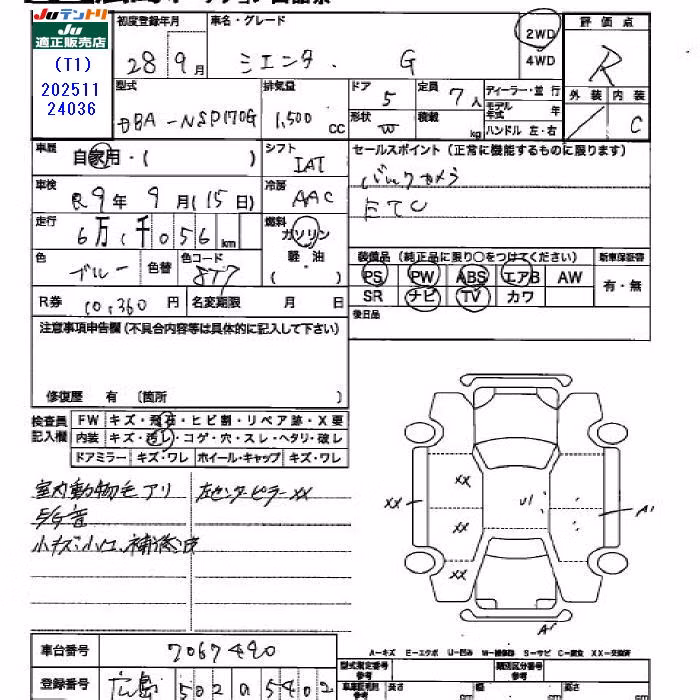 Juテントリ
Ju
適正販売店
(T1)
202511
24036
初度登録年月
28 9月
車名・グレード
シエンタ G
2WD
4WD
評価点
R
型式
DBA-NSP170G
排気量
1,500 CC
ドア
5
定員
7人
ディーラー・並行
形状
W
積載
kg
モデル年式
年
ハンドル 左・右
外装
内装
C
車歴
自家用・( )
シフト
IAT
セールスポイント(正常に機能するものに限ります)
バックカメラ
ETC
車検
R9年 9月(15日)
冷房
AAC
走行
6万1千056km
燃料
ガソリン
軽・油
( )
色
ブルー
色替
色コード
8T7
装備品(純正品に限り○をつけてください)
新車保証書
PS PW ABS エアB AW
有・無
SR ナビ TV カワ
R券
10,360円
名変期限
月 日
後日品
注意事項申告欄(不具合内容等は具体的に記入して下さい)
修復歴 有 〔箇所 〕
検査員記入欄
FW キズ・飛石・ヒビ割・リペア跡・X要
内装 キズ・汚レ・コゲ・穴・スレ・ヘタリ・破レ
ドアミラー キズ・ワレ ホイール・キャップ キズ・ワレ
室内動物毛アリ 左センターピラーXX
小キズ、小凹、補修済
XX
XX
XX
XX
U1
A1
A1
A-キズ E-エクボ U-凹み W-補修跡 S-サビ C-腐食 XX-交換済
車台番号
7067490
登録番号
広島 502 a 5402
型式指定番号
参考
類別区分番号
参考
長さ
cm
幅
cm
高さ
cm